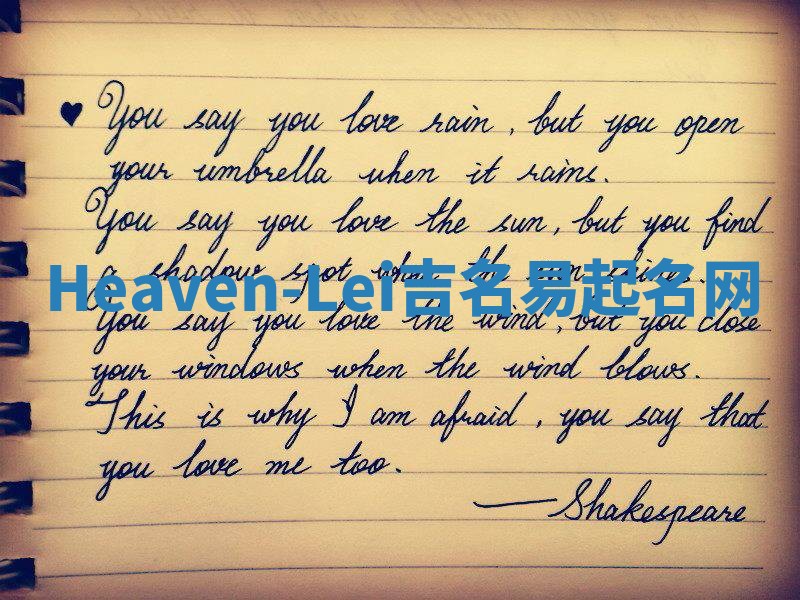 ♥ You say you love rain, but you open
your umbrella when it rains.
You say you love the sun, but you find
a shadow spot when the sun shines.
Heaven-Lei吉名易起名网
You say you love the wind, but you close
your windows when the wind blows.
This is why I am afraid, you say that
you love me too.
— Shakespeare